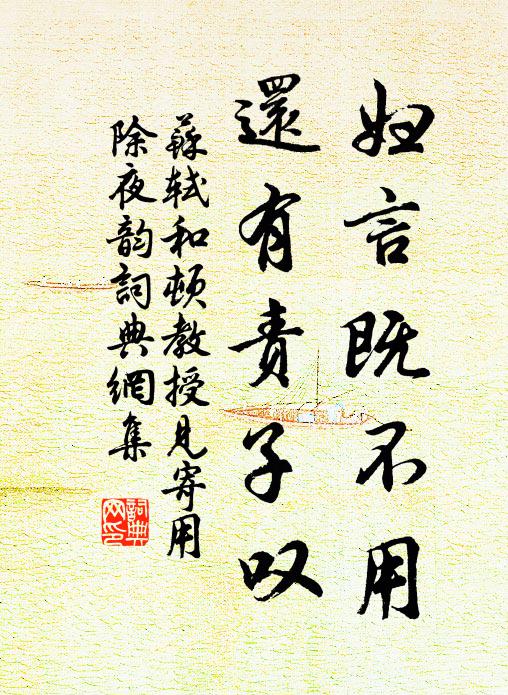 妇言既不用
還有責子叹
蘇軾和頓教授見寄用
除夜韵詞典網集
詞典網印